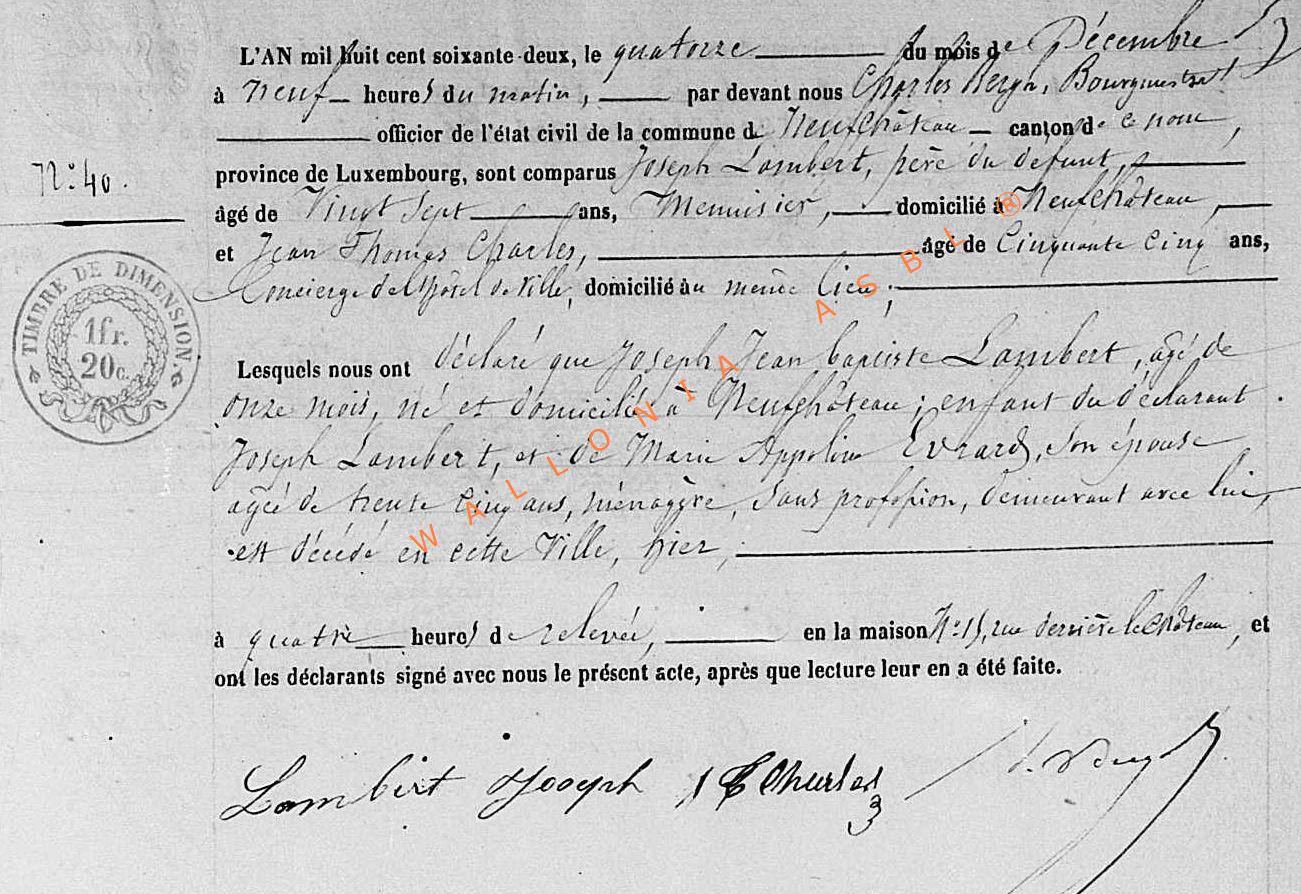 L'AN mil huit cent soixante-deux, le quatorze du mois de Décembre
à neuf heures du matin, par devant nous Charles Bergh, Bourgmestre
officier de l'état civil de la commune de Neufchâteau canton de ce nom,
N° 40.
province de Luxembourg, sont comparus Joseph Lambert, père du défunt,
âgé de Vingt Sept ans, Menuisier, domicilié à Neufchâteau,
et Jean Thomas Charles, âgé de Cinquante Cinq ans,
Concierge de l'hôtel de Ville, domicilié au même lieu;
TIMBRE DE DIMENSION.
1fr.
20c.
Lesquels nous ont déclaré que Joseph Jean baptiste Lambert, âgé de
onze mois, né et domicilié à Neufchâteau; enfant du déclarant
Joseph Lambert, et de Marie Appoline Evrard, son épouse
agée de trente cinq ans, ménagère, sans profession, demeurant avec lui,
est décédé en cette Ville, hier,
à quatre heures de relevée, en la maison N° 15, rue derrière le Château, et
ont les déclarants signé avec nous le présent acte, après que lecture leur en a été faite.
Lambert Joseph Charles
WALLONIA ASBL ®